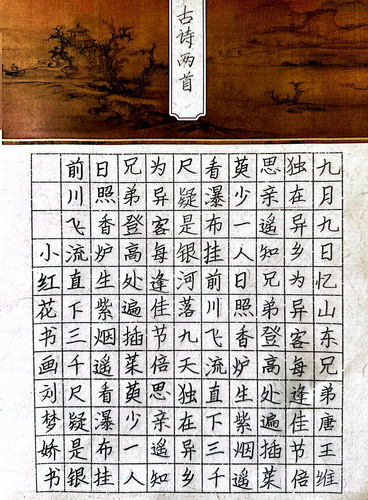 古诗两首
九月九日忆山东兄弟唐王维
独在异乡为异客每逢佳节倍
思亲遥知兄弟登高处遍插茱
萸少一人日照香炉生紫烟遥
看瀑布挂前川飞流直下三千
尺疑是银河落九天独在异乡
为异客每逢佳节倍思亲遥知
兄弟登高处遍插茱萸少一人
日照香炉生紫烟遥看瀑布挂
前川飞流直下三千尺疑是银
小红花书画刘梦娇书